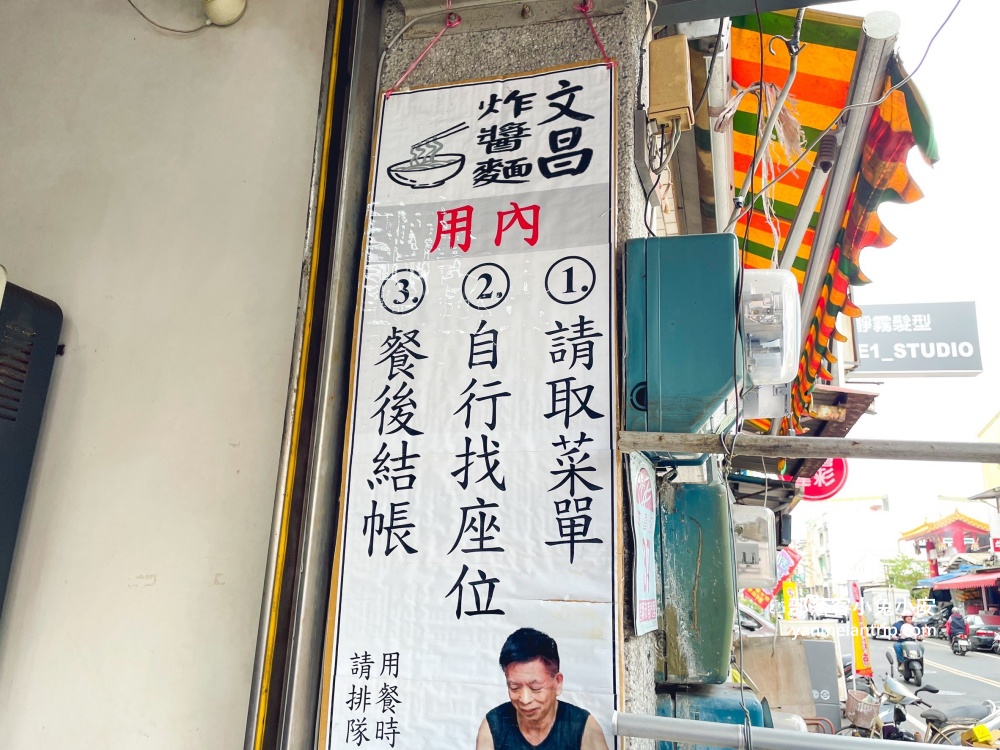 文昌
炸醬麵
內用
1.請取菜單
2.自行找座位
3.餐後結帳
用餐時
請排隊
靜霧髮型
E1_STUDIO
彩
yanmeiantrip.com